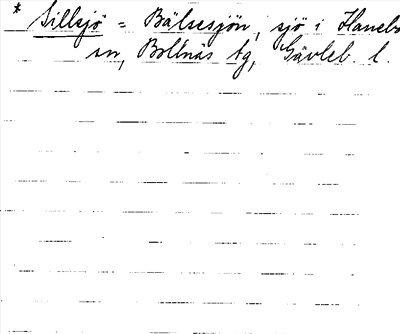 * Sillsjö = Bälsesjön, sjö i Hanebo
sn, Bollnäs tg, Gävleb. l.